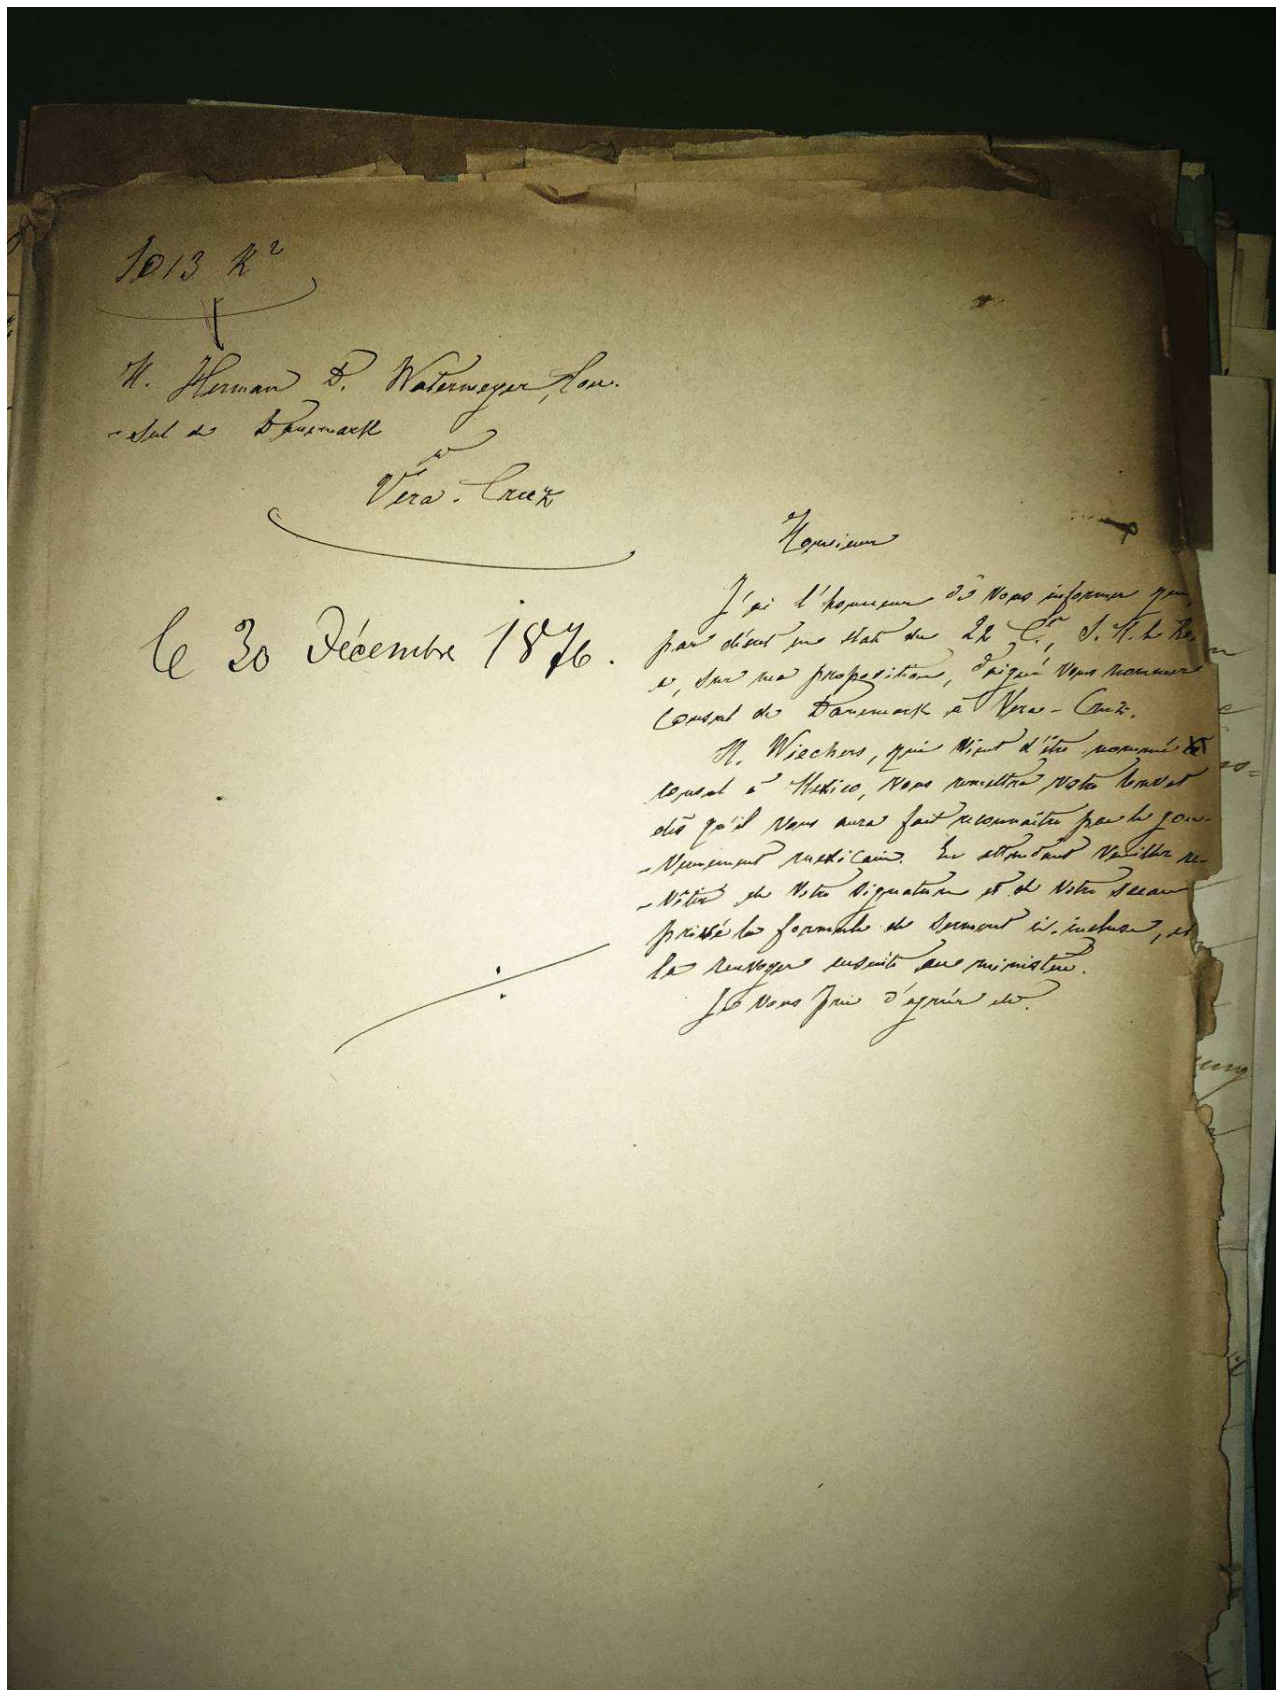 1013 K²
M. Herman D. Watermeyer, Con-
-sul de Danemark
à
Vera-Cruz
le 30 Décembre 1876.
Monsieur
J'ai l'honneur de vous informer que,
par décret en date du 22 Ct., S. M. le Roi
a, sur ma proposition, daigné vous nommer
Consul de Danemark à Vera-Cruz.
M. Wiechers, qui vient d'être nommé
consul à Mexico, vous remettra votre brevet
dès qu'il vous aura fait reconnaître par le gou-
-vernement mexicain. En attendant veuillez re-
-vêtir de votre signature et de votre sceau
privé la formule de serment ci-incluse, et
la renvoyer ensuite au ministère.
Je vous prie d'agréer etc.